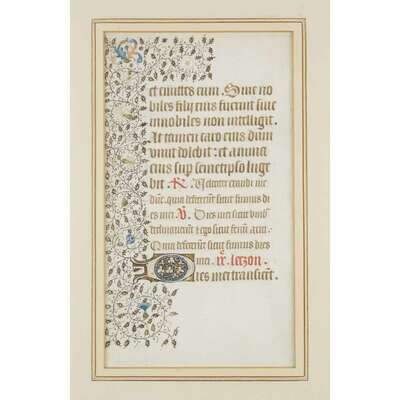 et emittes eum. Sive no
biles filij eius fuerint sive
innobiles non intelligit.
At tamen caro eius dum
vivit dolebit : et anima
eius sup semetipso luge
bit. R. Velociter exaudi me
dne. quia defecerunt sicut fumus di
es mei. V. Dies mei sicut umb
declinaverunt et ego sicut fenū arui.
Quia defecerunt sicut fumus dies
mei. ix. leczon.
Dies mei transierūt.